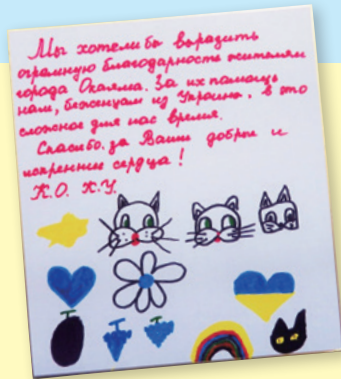 Мы хотели бы выразить
огромную благодарность жителям
города Окаяма. За их помощь
нам, беженцам из Украины, в это
сложное для нас время.
Спасибо за Ваши добрые и
искренние сердца!
К.О. К.У.